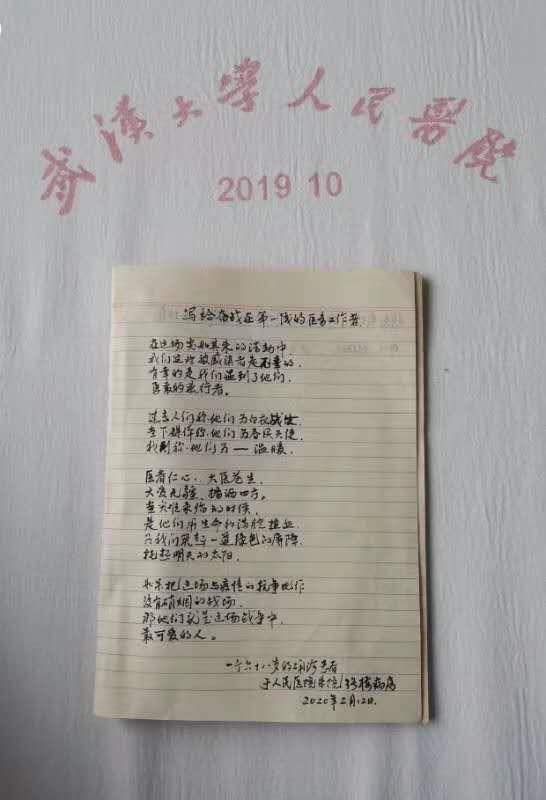 武汉大学人民医院
2019 10
写给奋战在第一线的医务工作者
在这场突如其来的活动中
我们这些被感染者是不幸的,
有幸的是我们遇到了他们,
医嘱的执行者。
过去人们称他们为白衣战士
当下媒体称他们为春辰天使
我则称他们为——温暖,
医者仁心、大医苍生
大爱无疆、播洒四方。
当灾难来临的时候,
是他们用生命和满腔热血
为我们筑起一道绿色的屏障
托起明天的太阳.
如果把这场与疫情的抗争比作
没有硝烟的战场.
那他们就是这场战争中,
最可爱的人。
一个六十八岁的治疗患者
于人民医院东院 病房
2020年2月12日.